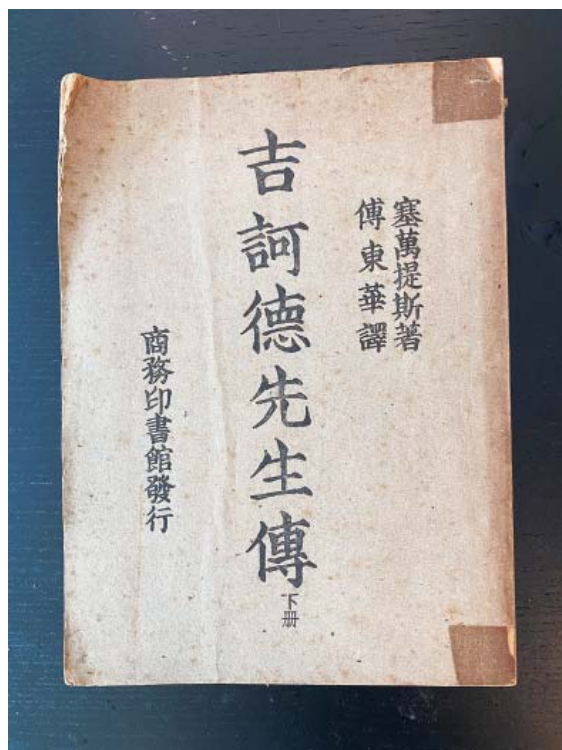 塞萬提斯著
傅東華譯
吉訶德先生傳 下册
商務印書館發行